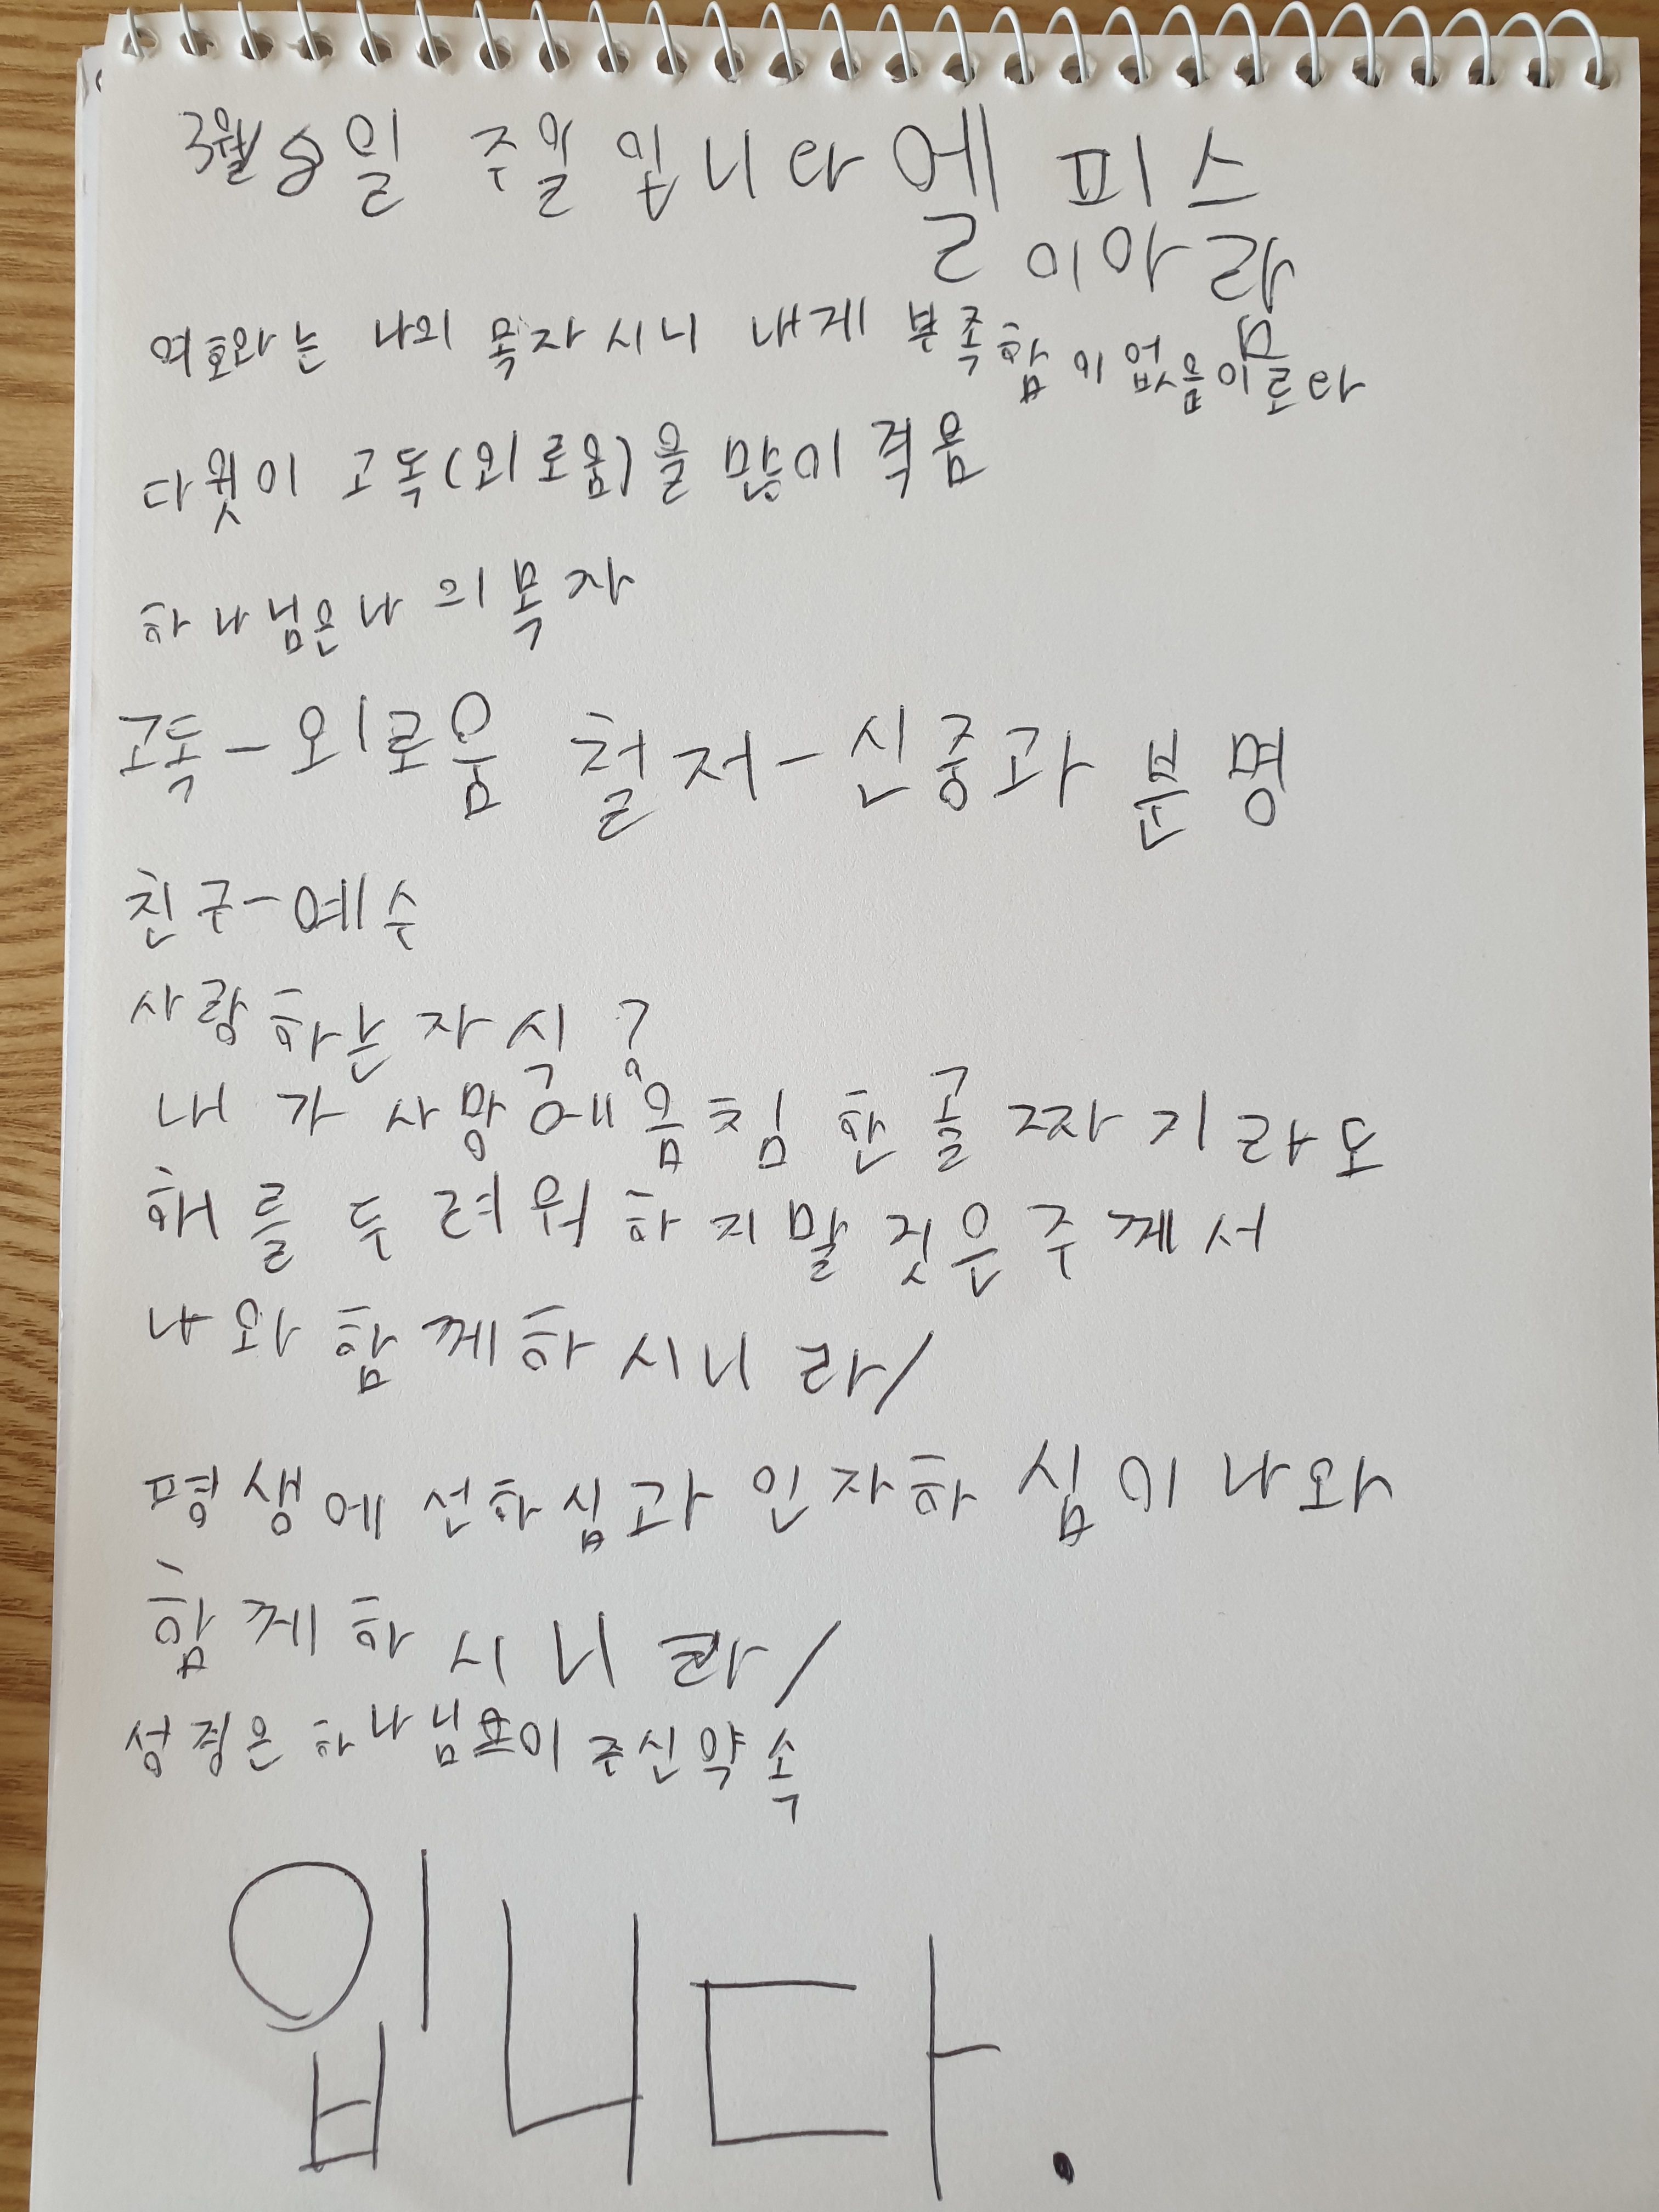 3월 8일 주일입니다 엘피스
이아람
여호와는 나의 목자시니 내게 부족함이 없음이로다
다윗이 고독(외로움)을 많이 적음
하나님은 나의 목자
고독-외로움 철저-신중과 분명
친구-예수
사랑하는 자식?
내가 사망궁에음침한 골짜기라도
해를 두려워하지말짓은주께서
나와 함께하시니라/
평생에 선하심과 인자하심이 나와
함께하시니라/
성경은 하나님이 주신약속
입니다.